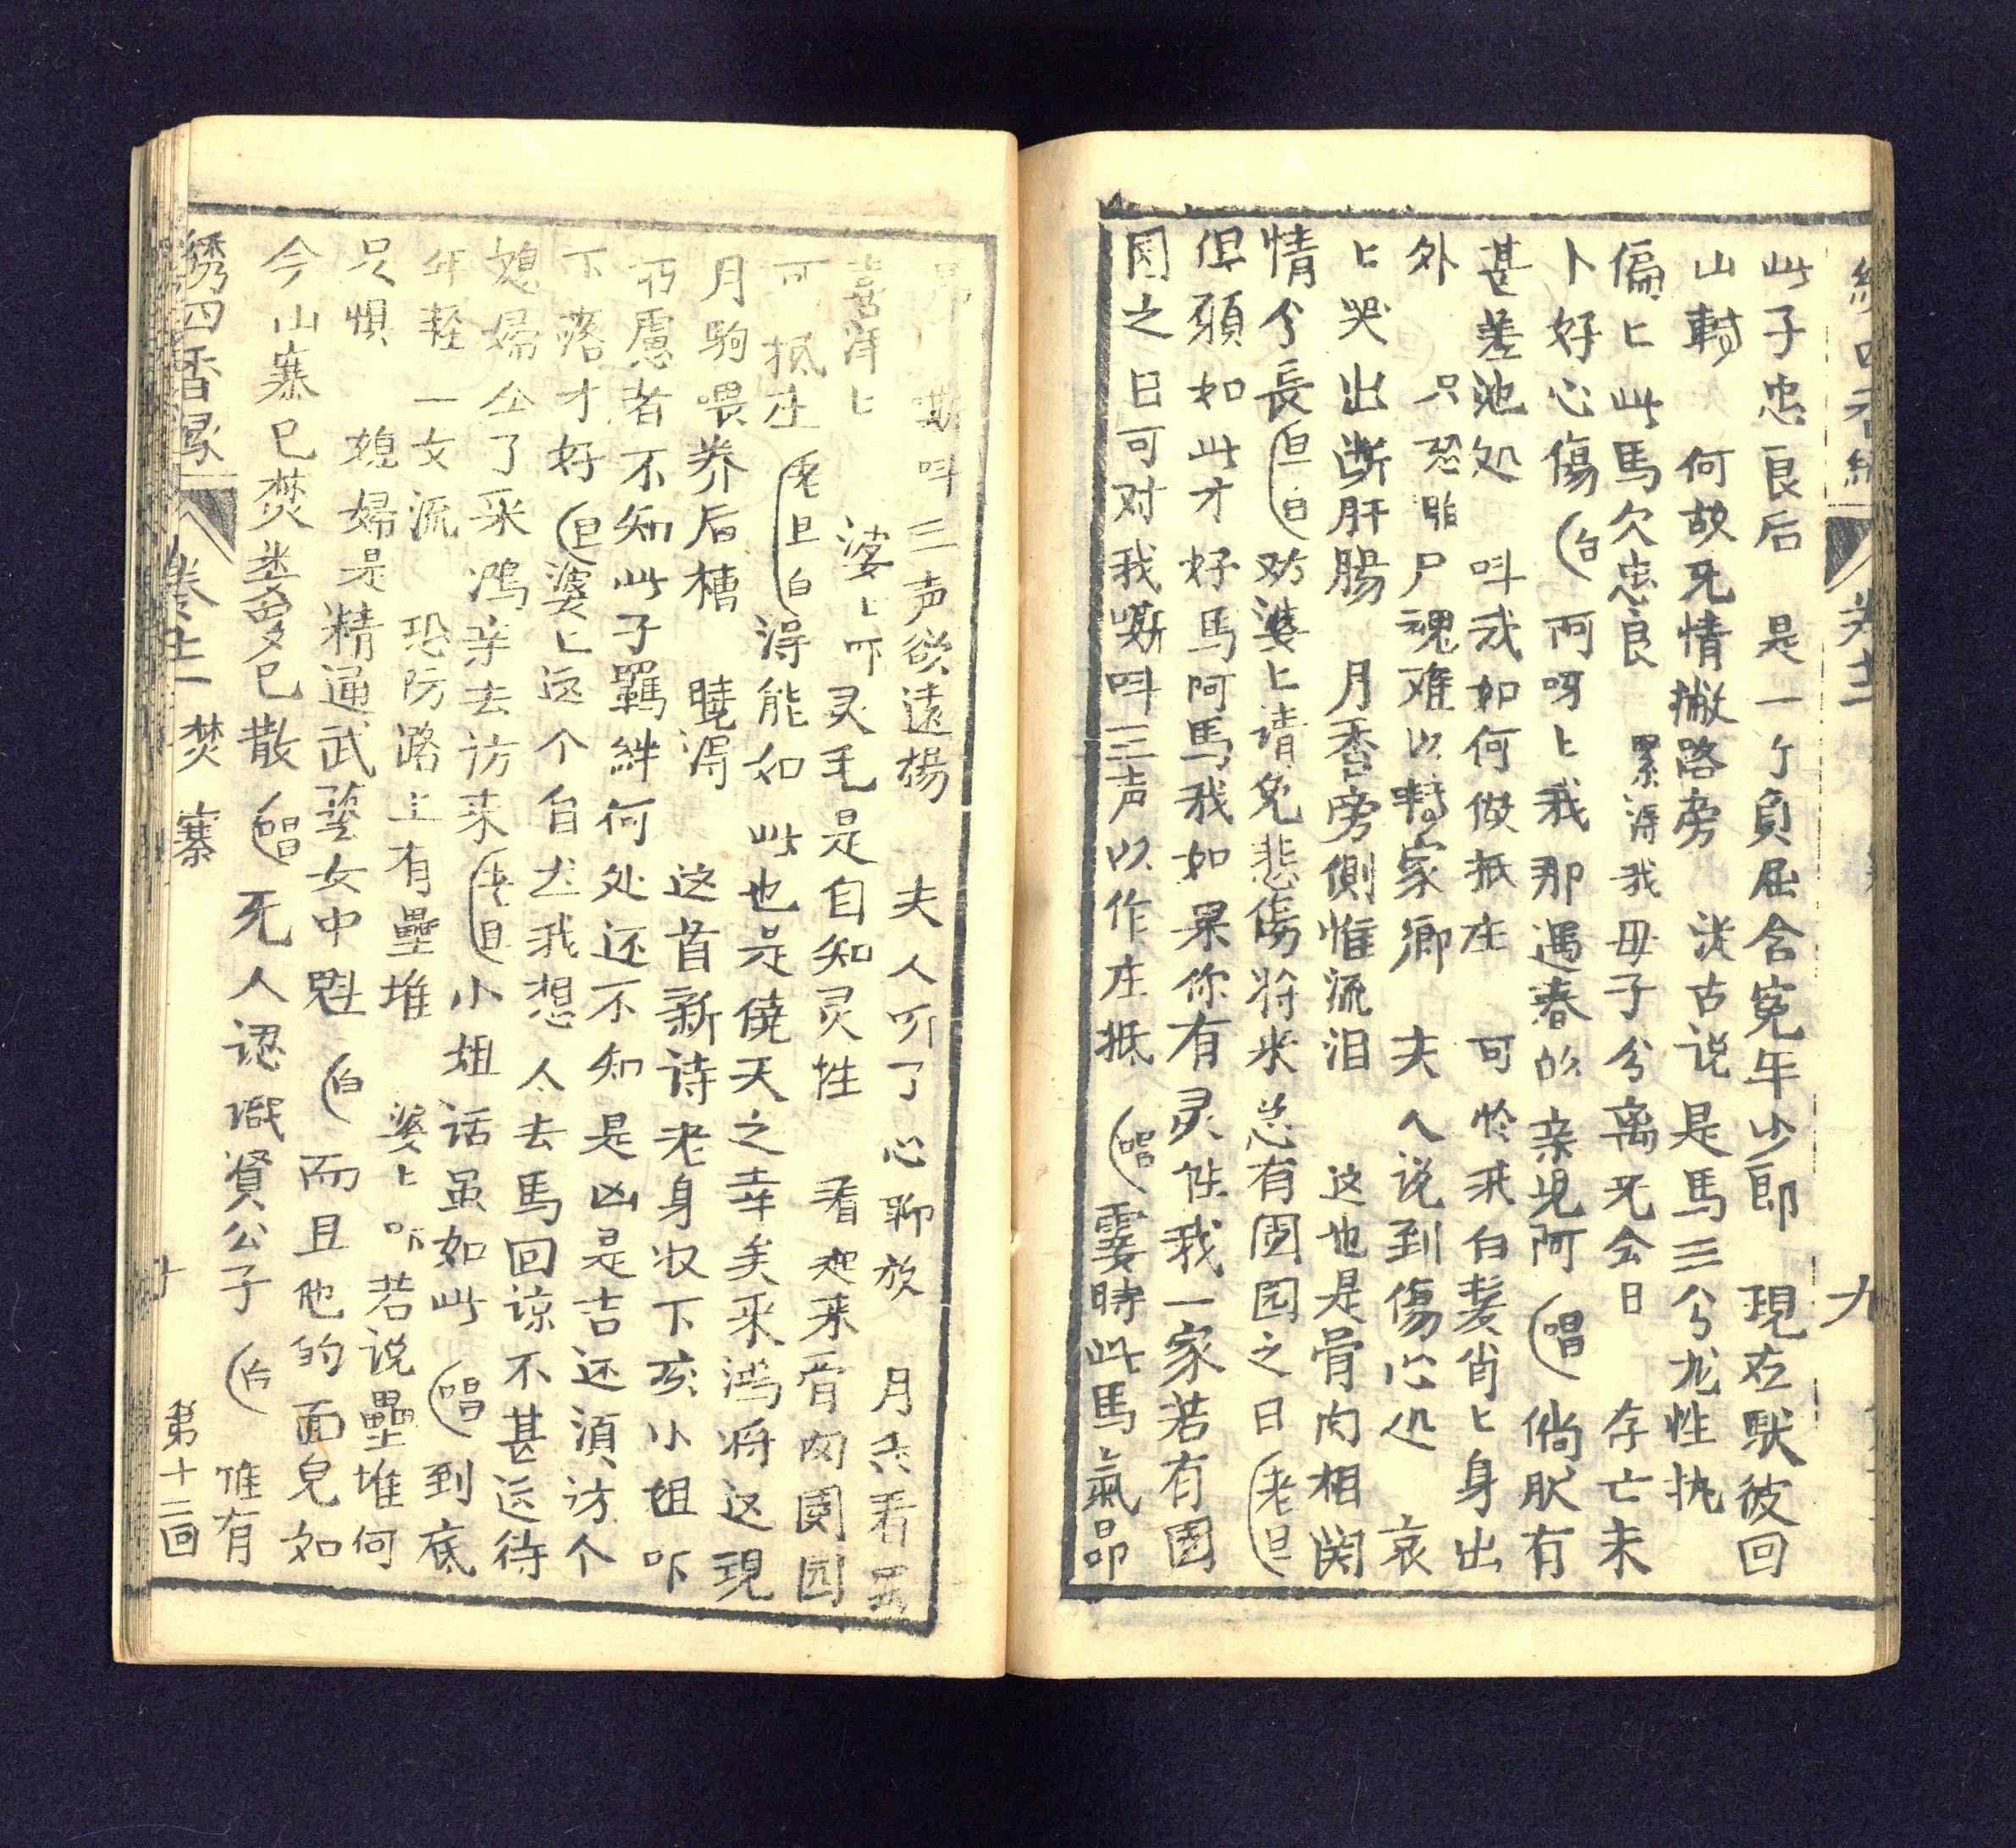 此子忠良后　是一个負屈含冤年少郎　現在馱彼回
山　何故无情撇路旁　談古说　是馬三分龙性执
偏匕此馬欠忠良　累得我母子分离无会日　存亡未
卜好心傷(白)阿呀匕我那遇春的亲児阿(唱)倘朕有
甚差池処　叫我如何做抵庄　可怜我白髮肖匕身出
外　只恐尸魂难以轉家鄉　夫人说到傷心処　哀
匕哭出断肝腸　月香旁側惟流泪　这也是骨肉相関
情兮長(旦白)劝婆匕请免悲傷将来总有团园之日(老旦)
但願如此才好馬阿馬我如果你有灵性我一家若有团
园之日可对我嘶叫三声以作庄抵(唱)霎時此馬氣昂
昂　嘶叫三声欲遠楊　夫人听了心聊放　月香看
喜洋匕　婆匕吓灵毛是自知灵性　看起来骨肉团园
可抵庄(老旦白)得能如此也是僥天之幸矣采鴻将这現
月駒喂养后槽　曉得　这首新诗老身収下孩小姐吓
所慮者不知此子羈絆何处还不知是凶是吉还須访个
下落才好(旦)婆匕这个自然我想人去馬回谅不甚远待
媳婦仝了采鴻亲去访来(老旦)小姐话虽如此(唱)到底
年輕一女流　恐防路上有壘堆　婆匕吓若说壘堆何
足惧　媳婦是精通武藝女中魁(白)而且他的面兒如
今山寨已焚娄罗已散(唱)死人认识賢公子(白)惟有
綉四香緣　卷十二　焚寨　十　第十二回